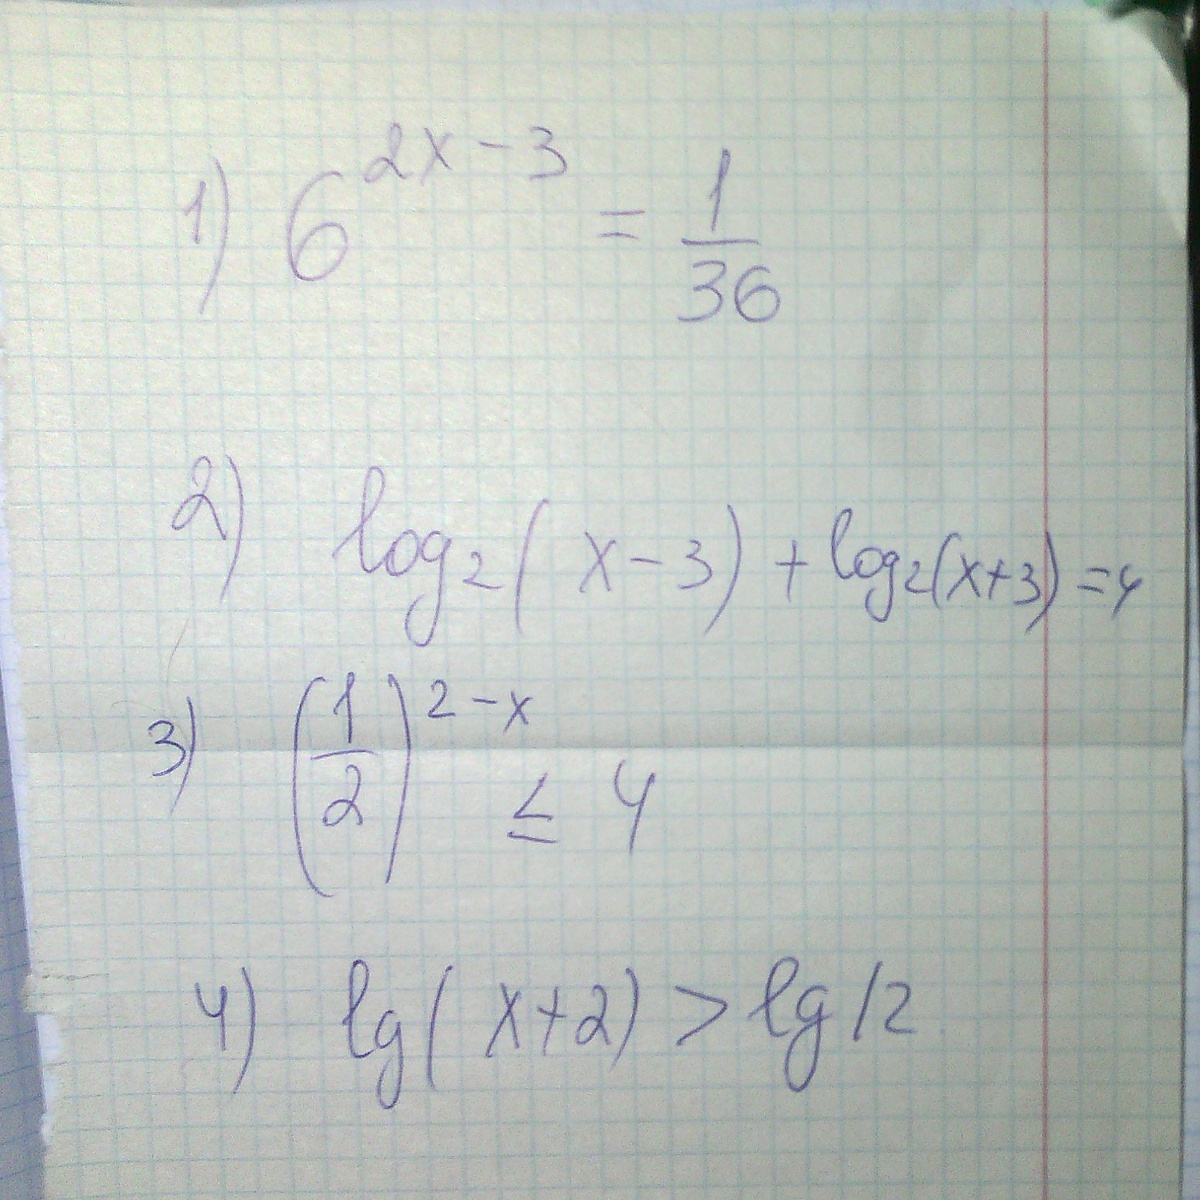 1) 6^{2x-3} = \frac{1}{36}
2) log₂(x-3)+log₂(x+3)=4
3) (\frac{1}{2})^{2-x} ≤ 4
4) lg(x+2)>lg12